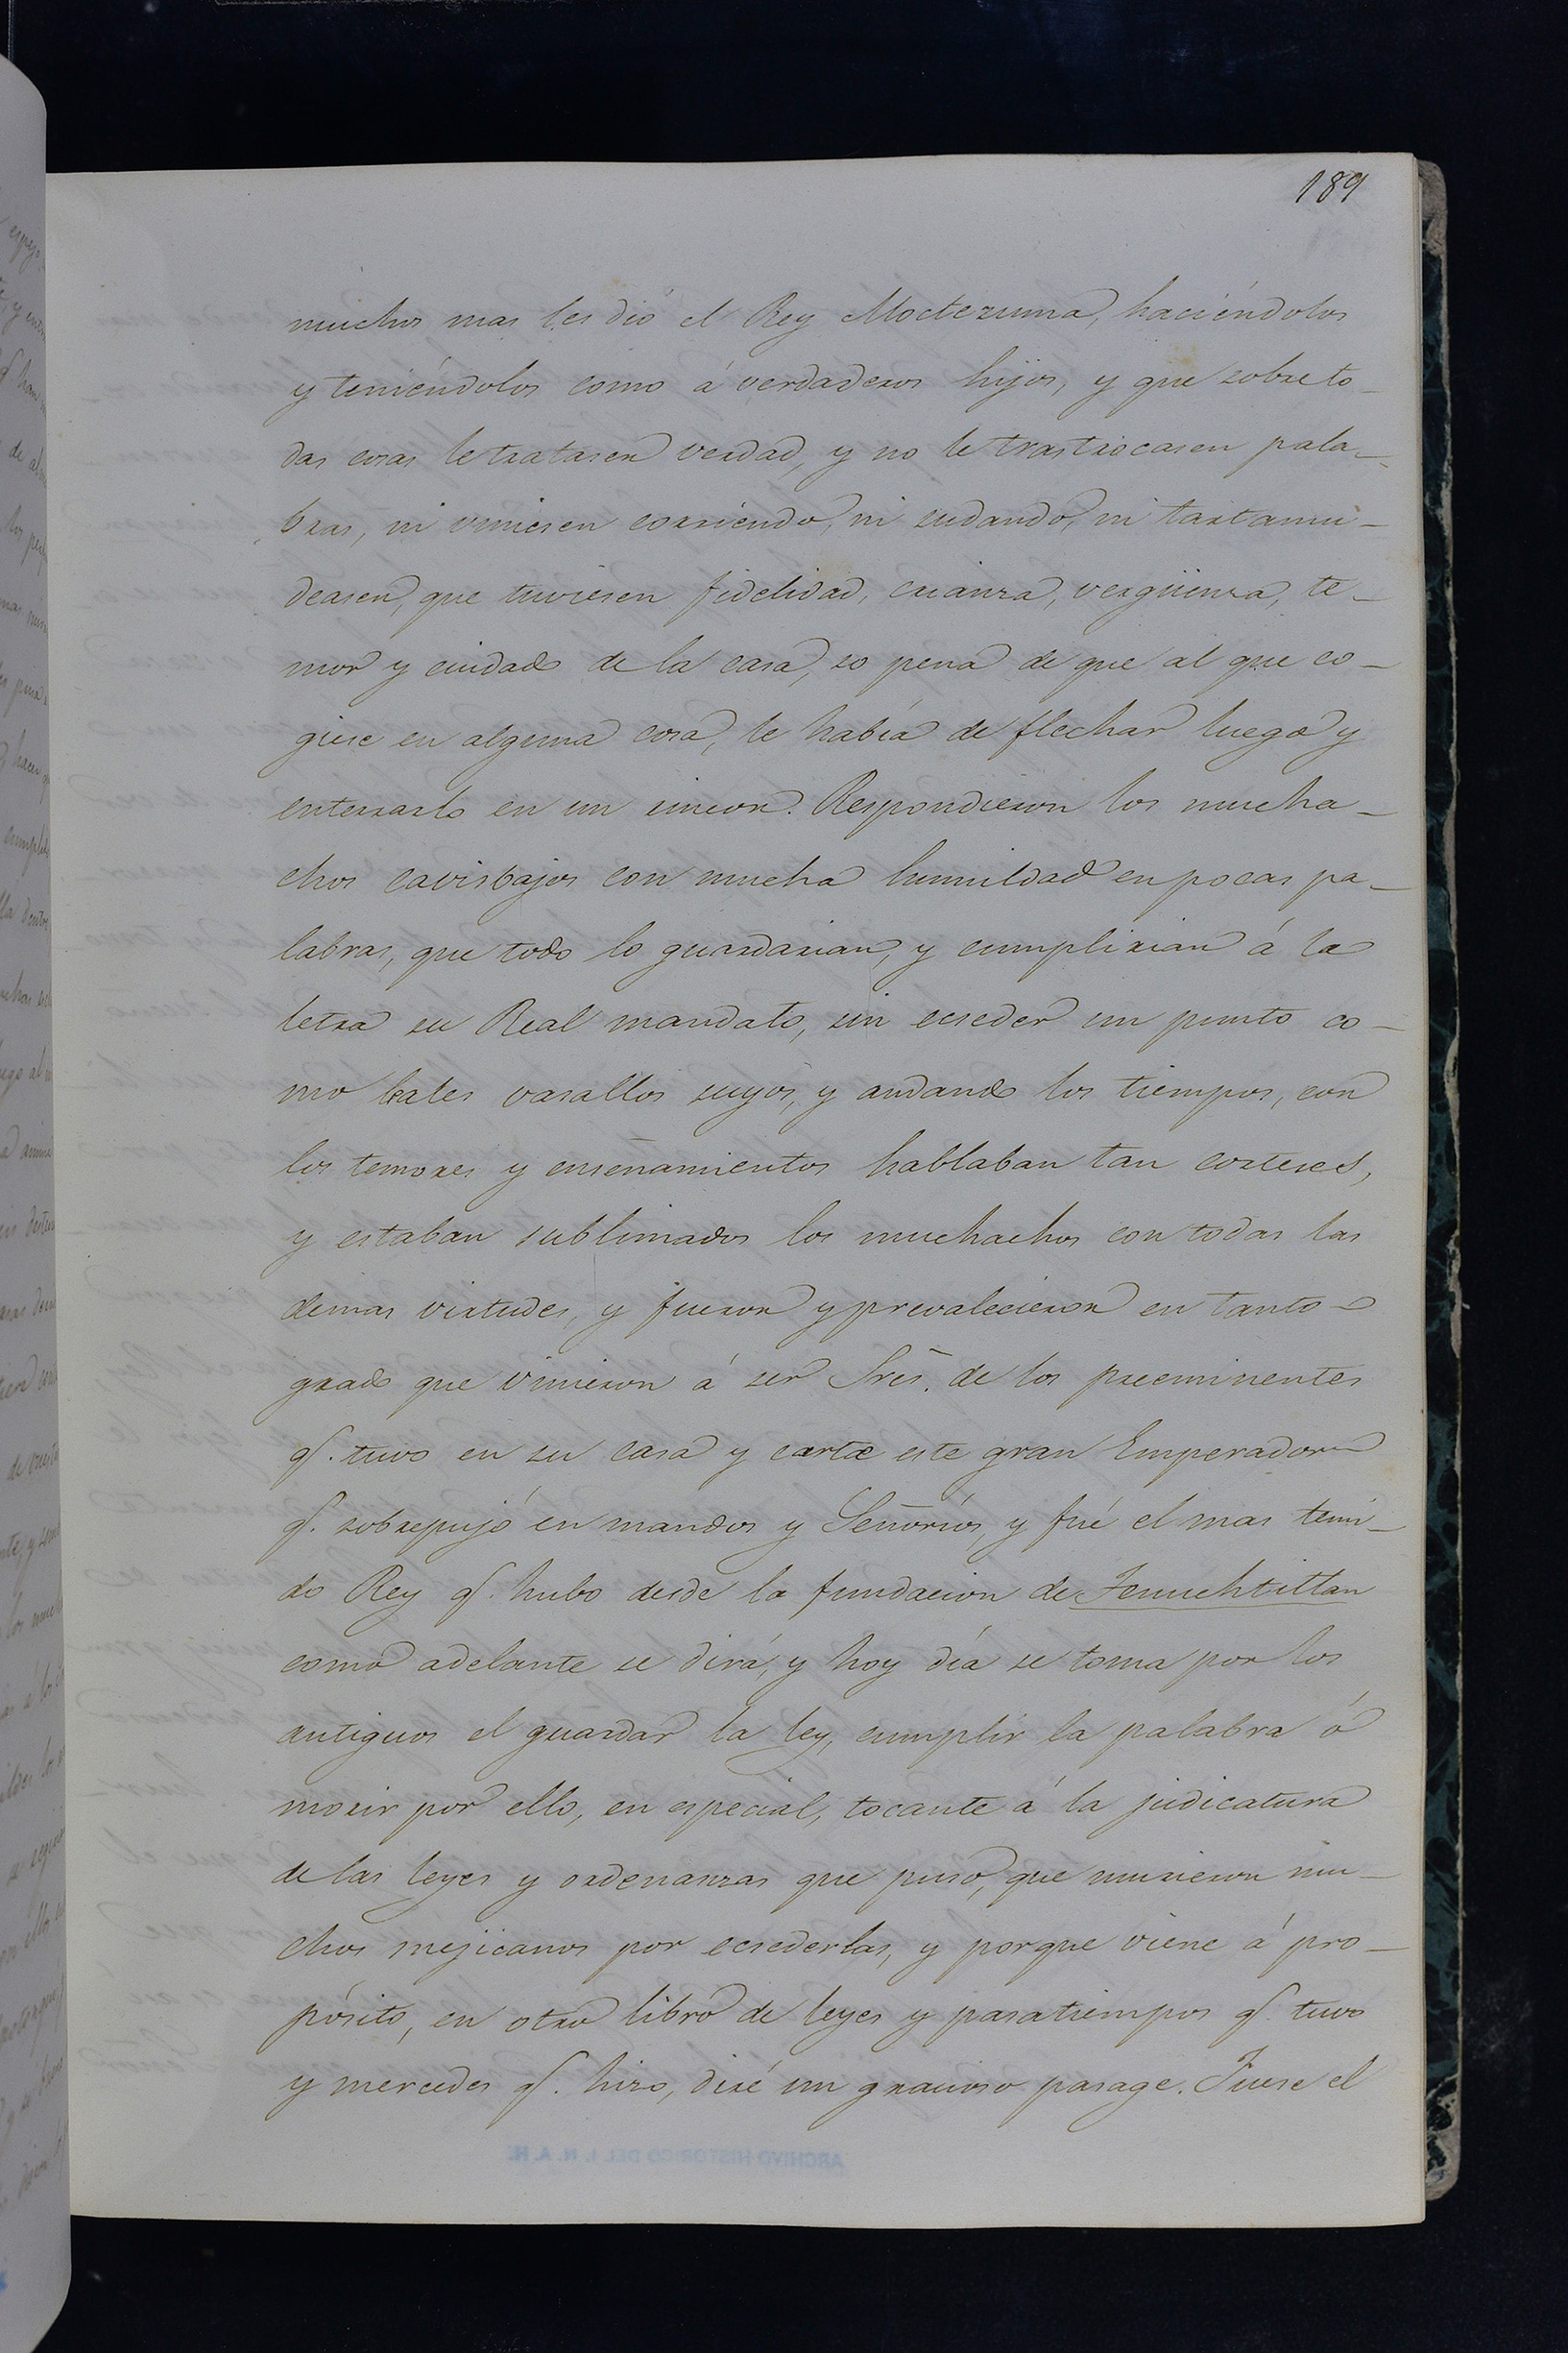 189
muchos mas les dió el Rey Moctezuma, haciéndolos
y teniéndolos como á verdaderos hijos, y que sobre to-
das cosas le tratasen verdad, y no le trastrocasen pala-
bras, ni viniesen corriendo, ni sudando, ni tartamu-
deasen, que tuviesen fidelidad, crianza, vergüenza, te-
mor y cuidado de la casa, so pena de que al que co-
giese en alguna cosa, le había de flechar luego y
enterrarlo en un rincon. Respondieron los mucha-
chos cavisbajos con mucha humildad en pocas pa-
labras, que todo lo guardarian, y cumplirian á la
letra su Real mandato, sin ecseder un punto co-
mo leales vasallos suyos, y andando los tiempos, con
los temores y enseñamientos hablaban tan corteses,
y estaban sublimados los muchachos con todas las
demas virtudes, y fueron y prevalecieron en tanto
grado que vinieron á ser Sres. de los preeminentes
q. tuvo en su casa y corte este gran Emperador
q. sobrepujó en mandos y Señoríos, y fué el mas temi-
do Rey q. hubo desde la fundacion de Tenuchtitlan
como adelante se dirá, y hoy día se toma por los
antiguos el guardar la ley, cumplir la palabra ó
morir por ello, en especial, tocante á la judicatura
de las leyes y ordenanzas que puso, que murieron mu-
chos mejicanos por ecsederlas, y porque viene á pro-
pósito, en otro libro de leyes y pasatiempos q. tuvo
y mercedes q. hizo, diré un gracioso pasage. Fuese el
ARCHIVO HISTORICO DEL I. N. A. H.